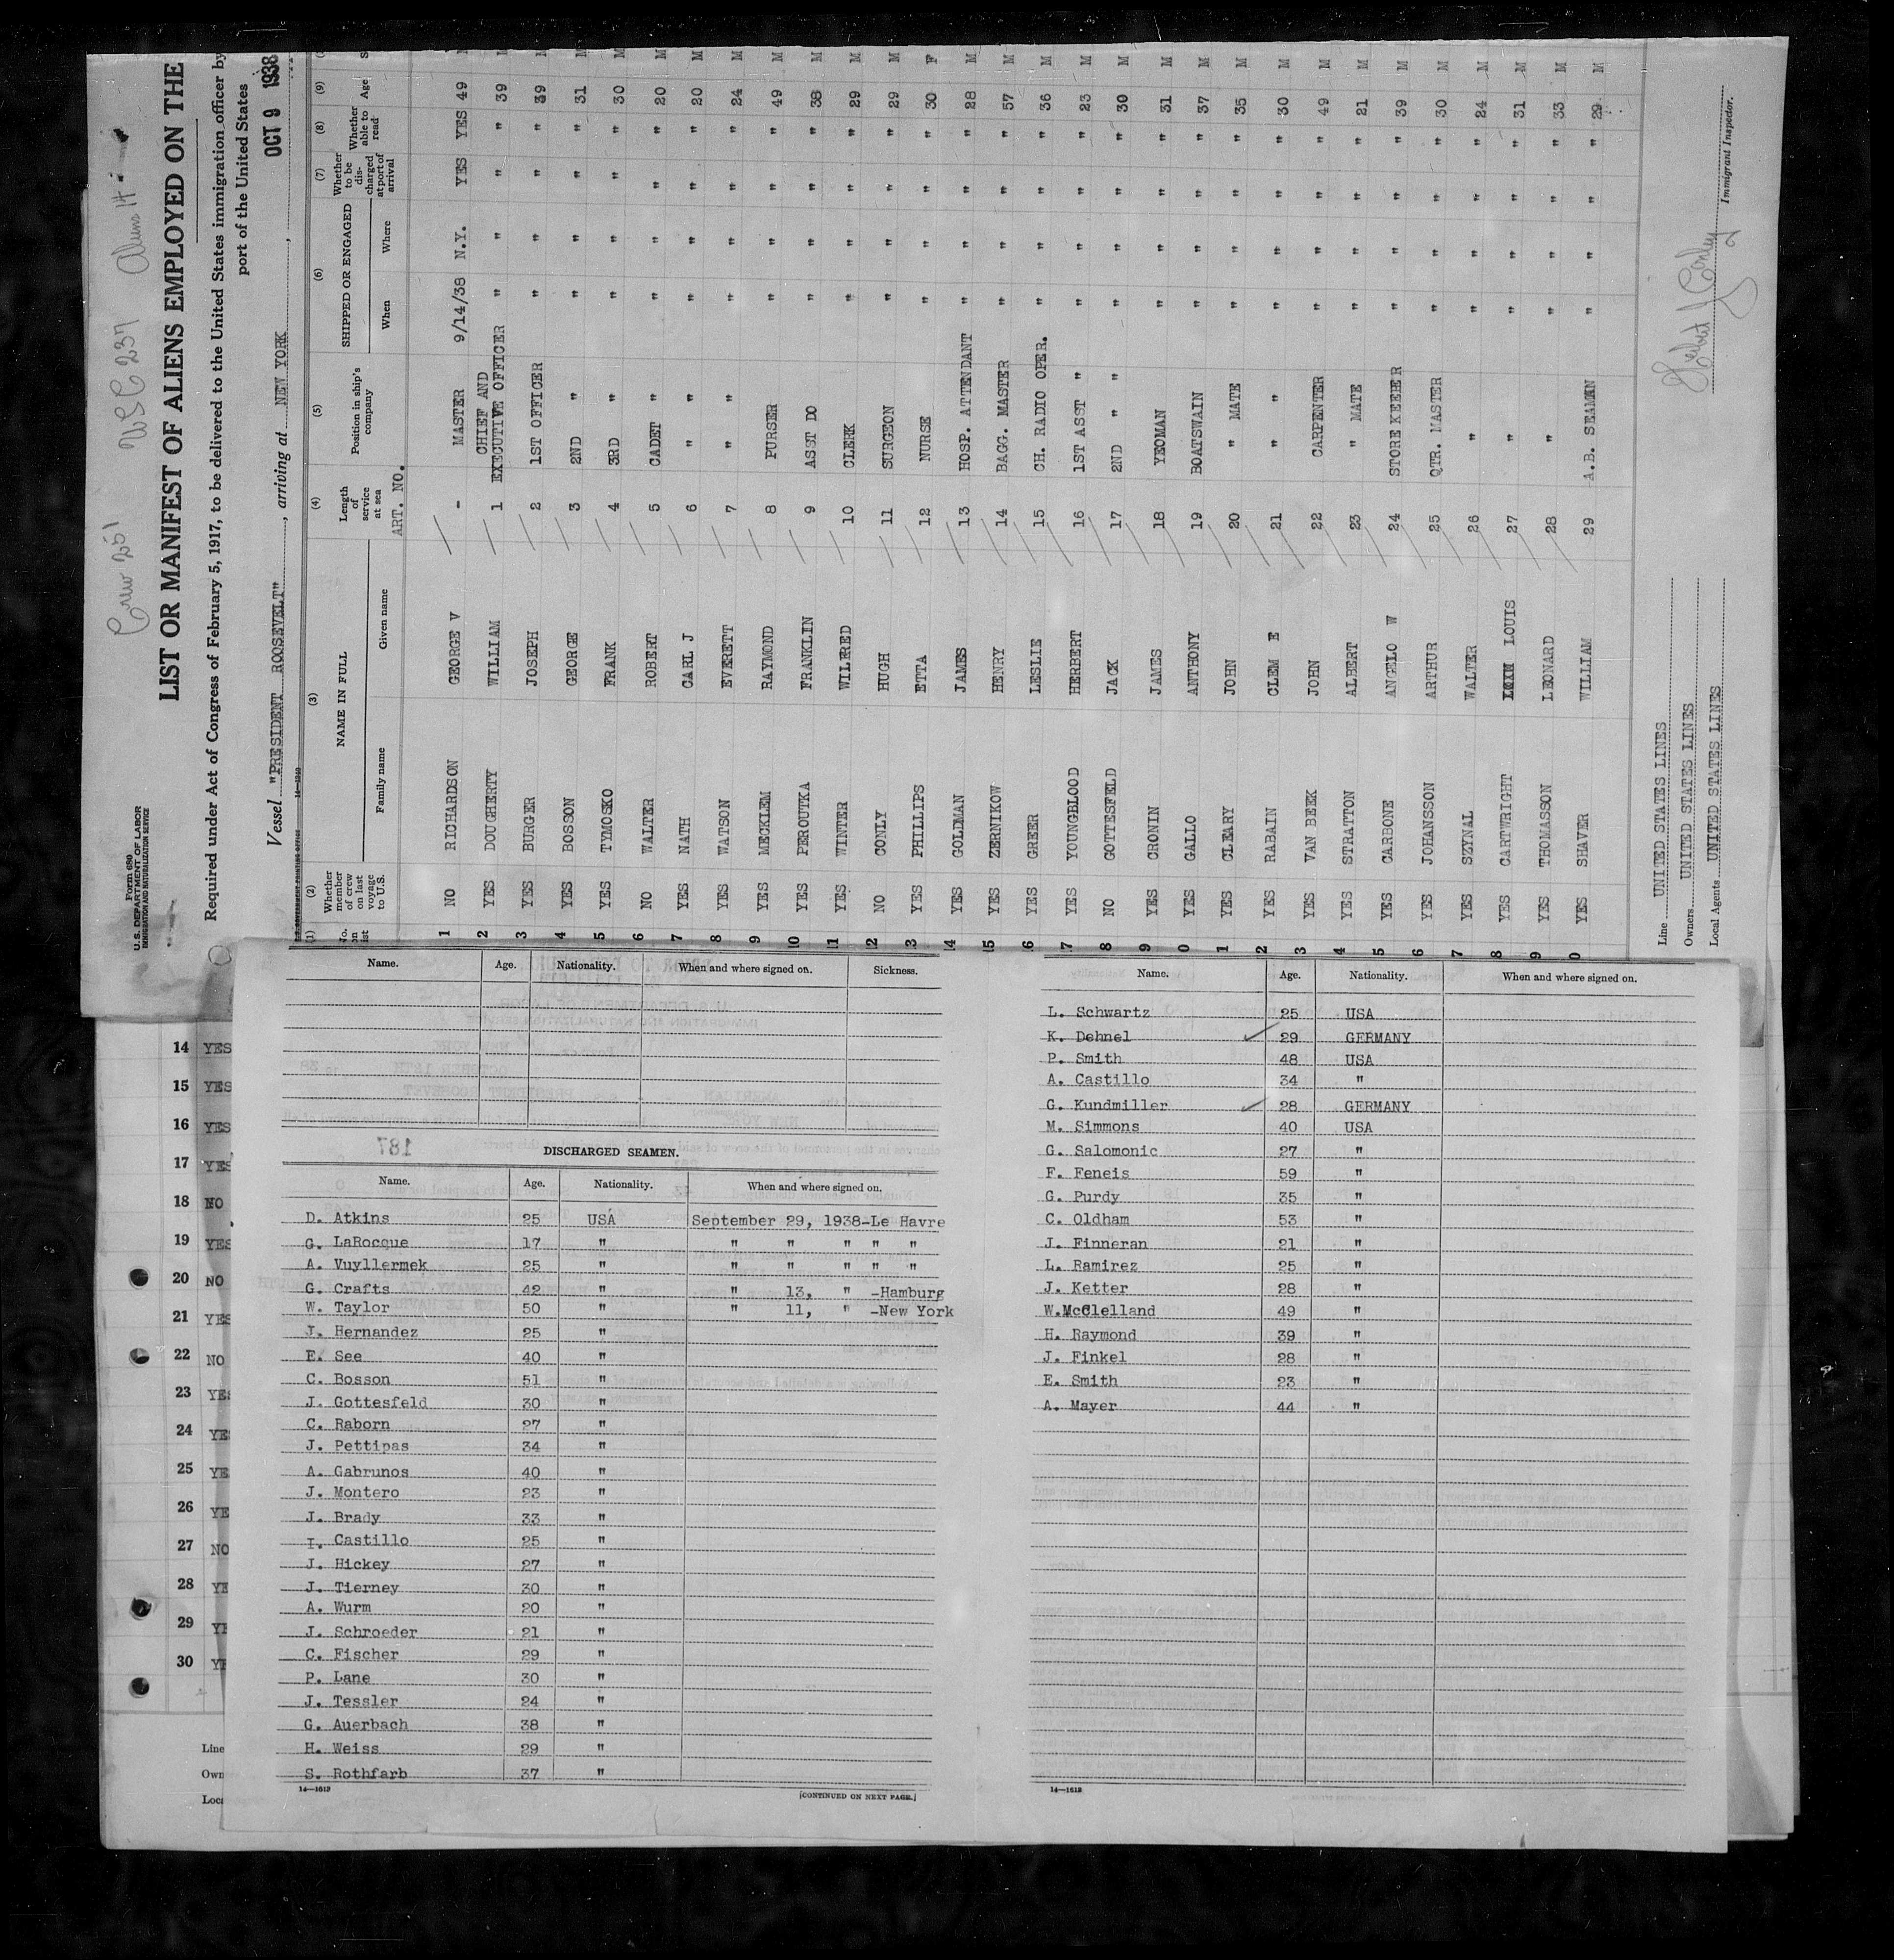 Crew 251 USC 237 Aliens 14
Form 680
U. S. DEPARTMENT OF LABOR
IMMIGRATION AND NATURALIZATION SERVICE
LIST OR MANIFEST OF ALIENS EMPLOYED ON THE
Required under Act of Congress of February 5, 1917, to be delivered to the United States immigration officer by
port of the United States
Vessel "PRESIDENT ROOSEVELT", arriving at NEW YORK, OCT 9 1938
(1) (2) (3) (4) (5) (6) (7) (8) (9)
No. on list Whether member of crew on last voyage to U.S. NAME IN FULL Length of service at sea Position in ship's company SHIPPED OR ENGAGED Whether to be discharged at port of arrival Whether able to read Age S
Family name Given name When Where
ART. NO.
1 NO RICHARDSON GEORGE V - MASTER 9/14/38 N.Y. YES YES 49 M
2 YES DOUGHERTY WILLIAM 1 CHIEF AND EXECUTIVE OFFICER " " " " 39 M
3 YES BURGER JOSEPH 2 1ST OFFICER " " " " 39 M
4 YES BOSSON GEORGE 3 2ND " " " " " 31 M
5 YES TYMOSKO FRANK 4 3RD " " " " " 30 M
6 NO WALTER ROBERT 5 CADET " " " " " 20 M
7 YES NATH CARL J 6 " " " " " " 20 M
8 YES WATSON EVERETT 7 " " " " " " 24 M
9 YES MECKLEM RAYMOND 8 PURSER " " " " 49 M
10 YES PEROUTKA FRANKLIN 9 ASST DO " " " " 38 M
11 YES WINTER WILFRED 10 CLERK " " " " 29 M
12 NO CONLY HUGH 11 SURGEON " " " " 29 M
13 YES PHILLIPS ETTA 12 NURSE " " " " 30 F
14 YES GOLDMAN JAMES 13 HOSP. ATTENDANT " " " " 28 M
15 YES ZERNIKOW HENRY 14 BAGG. MASTER " " " " 57 M
16 YES GREER LESLIE 15 CH. RADIO OPER. " " " " 36 M
17 YES YOUNGBLOOD HERBERT 16 1ST ASST " " " " " 23 M
8 NO GOTTESFELD JACK 17 2ND " " " " " " 30 M
9 YES CRONIN JAMES 18 YEOMAN " " " " 31 M
0 YES GALLO ANTHONY 19 BOATSWAIN " " " " 37 M
1 YES CLEARY JOHN 20 " MATE " " " " 35 M
2 YES RABAIN CLEM E 21 " " " " " " 30 M
3 YES VAN BEEK JOHN 22 CARPENTER " " " " 49 M
4 YES STRATTON ALBERT 23 " MATE " " " " 21 M
5 YES CARBONE ANGELO W 24 STORE KEEPER " " " " 39 M
6 YES JOHANSSON ARTHUR 25 QTR. MASTER " " " " 30 M
7 YES SZYNAL WALTER 26 " " " " " 24 M
8 YES CARTWRIGHT LOUIS 27 " " " " " 31 M
9 YES THOMASSON LEONARD 28 " " " " " 33 M
0 YES SHAVER WILLIAM 29 A.B. SEAMEN " " " " 29 M
Line UNITED STATES LINES
Owners UNITED STATES LINES
Local Agents UNITED STATES LINES
Immigrant Inspector.
14 YES
15 YES
16 YES
17 YES
18 NO
19 YES
20 NO
21 YES
22 NO
23 YES
24 YE
25 YE
26 YE
27 NO
28 YE
29 YE
30 YE
Line
Own
Loca
Name. Age. Nationality. When and where signed on. Sickness.
187
DISCHARGED SEAMEN.
Name. Age. Nationality. When and where signed on.
D. Atkins 25 USA September 29, 1938-Le Havre
G. LaRocque 17 " " " " " "
A. Vuyllermek 25 " " " " " "
G. Crafts 42 " " 13, " -Hamburg
W. Taylor 50 " " 11, " -New York
J. Hernandez 25 "
E. See 40 "
C. Bosson 51 "
J. Gottesfeld 30 "
C. Raborn 27 "
J. Pettipas 34 "
A. Gabrunos 40 "
J. Montero 23 "
J. Brady 33 "
I. Castillo 25 "
J. Hickey 27 "
J. Tierney 30 "
A. Wurm 20 "
J. Schroeder 21 "
C. Fischer 29 "
P. Lane 30 "
J. Tessler 24 "
G. Auerbach 38 "
H. Weiss 29 "
S. Rothfarb 37 "
14—1613
[CONTINUED ON NEXT PAGE.]
Name. Age. Nationality. When and where signed on.
L. Schwartz 25 USA
K. Dehnel 29 GERMANY
P. Smith 48 USA
A. Castillo 34 "
G. Kundmiller 28 GERMANY
M. Simmons 40 USA
G. Salomonic 27 "
F. Feneis 59 "
G. Purdy 35 "
C. Oldham 53 "
J. Finneran 21 "
L. Ramirez 25 "
J. Ketter 28 "
W. McClelland 49 "
H. Raymond 39 "
J. Finkel 28 "
E. Smith 23 "
A. Mayer 44 "
14—1613